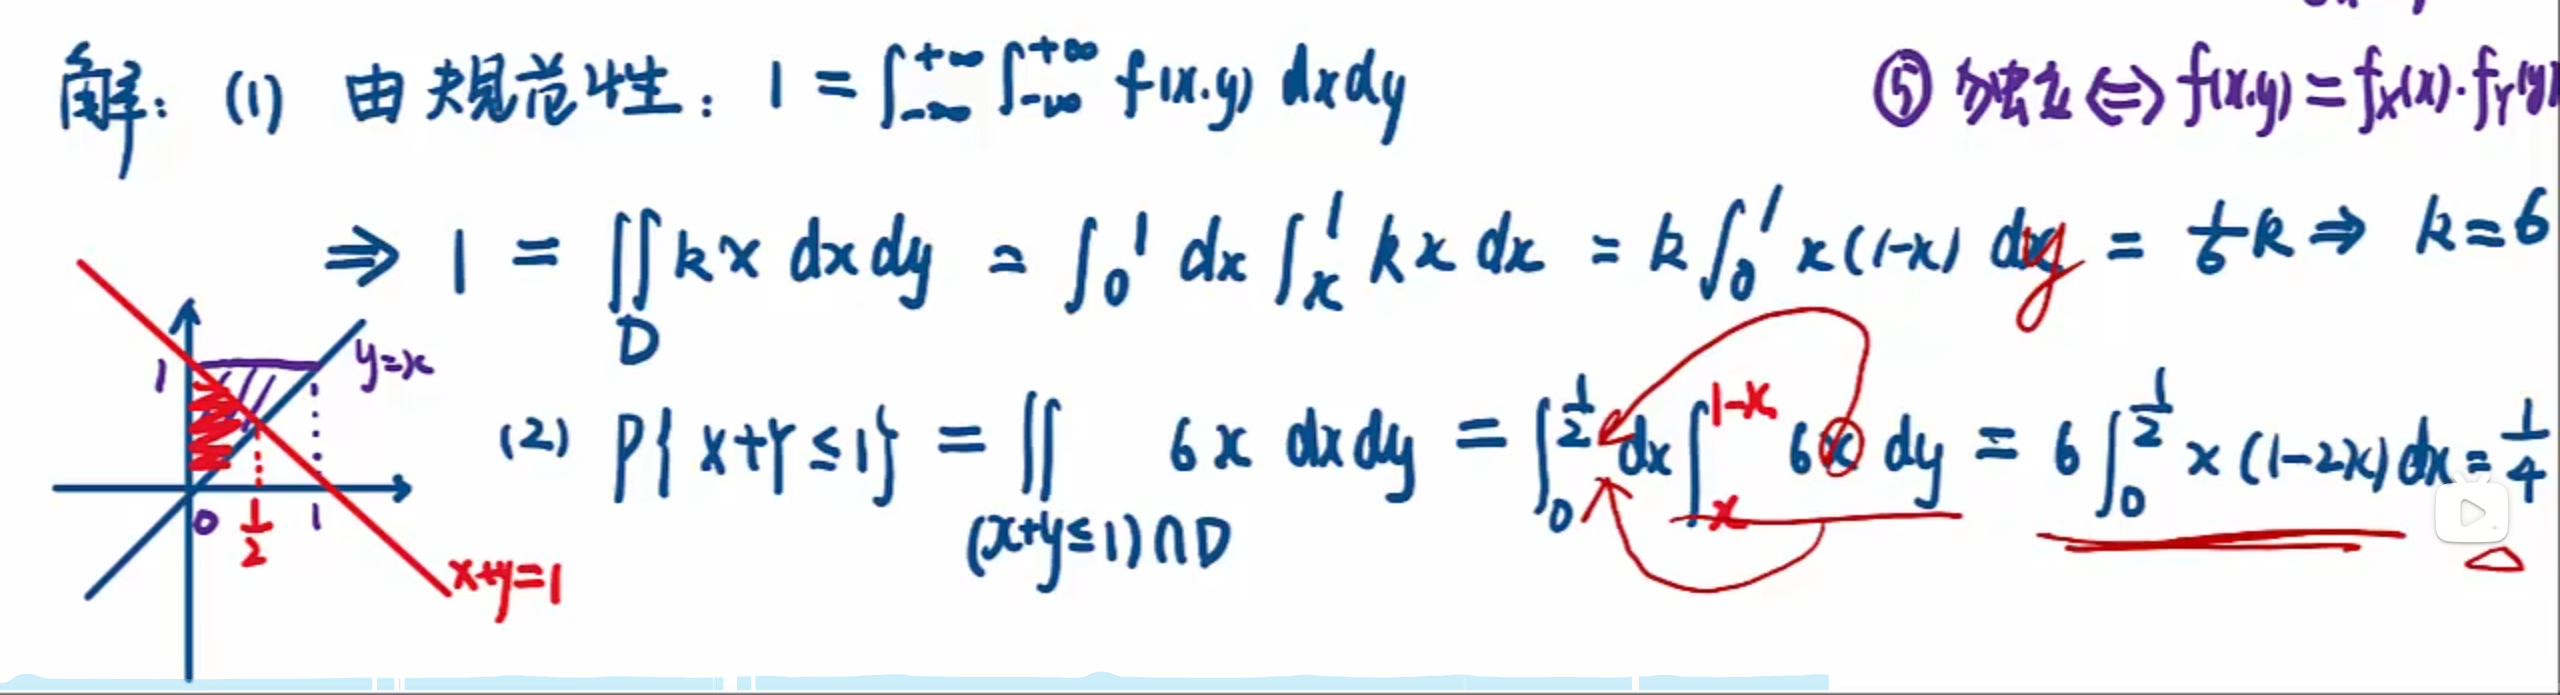 解：(1) 由规范性：1 = ∫_{-∞}^{+∞} ∫_{-∞}^{+∞} f(x.y) dxdy
⑤ 独立 ⇔ f(x.y) = f_X(x)·f_Y(y)
⇒ 1 = ∬_D kx dxdy = ∫_0^1 dx ∫_x^1 kx dx = k∫_0^1 x(1-x) dy = 1/6 k ⇒ k=6
(2) P{X+Y≤1} = ∬_{(x+y≤1)∩D} 6x dxdy = ∫_0^{1/2} dx ∫_x^{1-x} 6x dy = 6∫_0^{1/2} x(1-2x)dx = 1/4
1
y=x
0
1/2
1
x+y=1